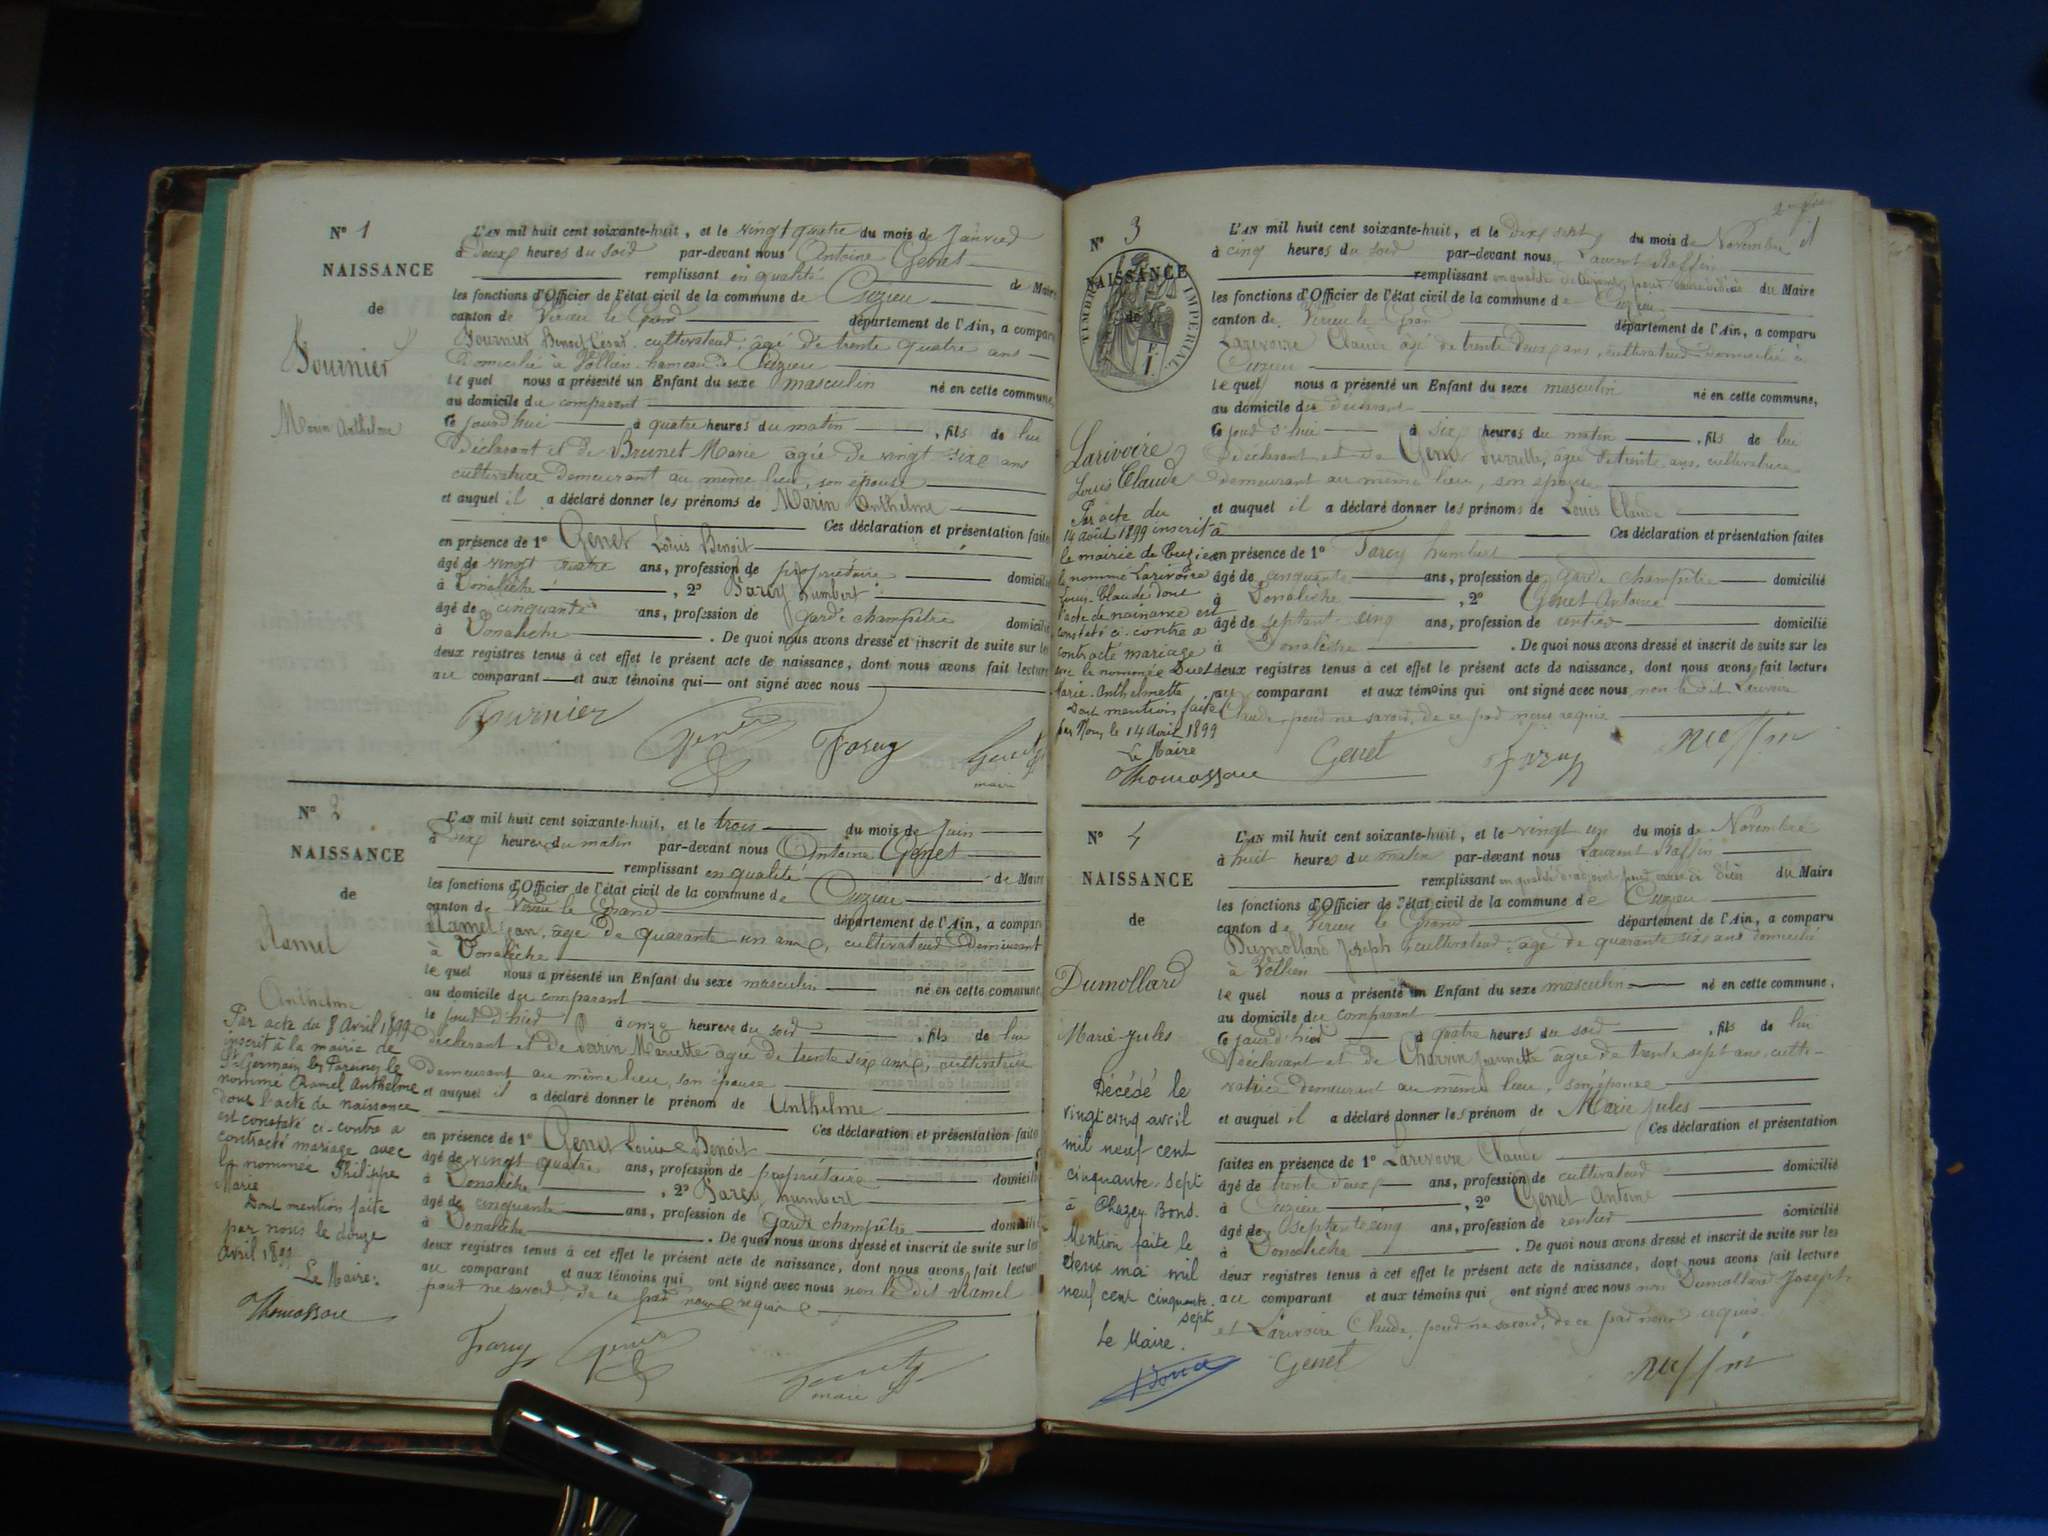 N° 1
NAISSANCE
de
Fournier
Marin Anthelme
L'AN mil huit cent soixante-huit, et le vingt quatre du mois de Janvier
à Deux heures du soir par-devant nous Antoine Genet
remplissant en qualité de Maire
les fonctions d'Officier de l'état civil de la commune de Cuzieu
canton de Virieu le Grand département de l'Ain, a comparu
Fournier Benoit César cultivateur, âgé de trente quatre ans
Domicilié à Vollien hameau de Cuzieu
lequel nous a présenté un Enfant du sexe masculin né en cette commune,
au domicile du comparant
ce jourd'hui à quatre heures du matin, fils de lui
Déclarant et de Brunet Marie âgée de vingt six ans
cultivatrice Demeurant au même lieu, son épouse
et auquel il a déclaré donner les prénoms de Marin Anthelme
Ces déclaration et présentation faites
en présence de 1° Genet Louis Benoit
âgé de vingt quatre ans, profession de propriétaire domicilié
à Vonalèche, 2° Farcy humbert
âgé de cinquante ans, profession de garde champêtre domicilié
à Vonalèche. De quoi nous avons dressé et inscrit de suite sur les
deux registres tenus à cet effet le présent acte de naissance, dont nous avons fait lecture
au comparant et aux témoins qui ont signé avec nous
Fournier Genet Farcy Genet
maire
N° 2
NAISSANCE
de
Ramel
Anthelme
Par acte du 8 Avril 1899
inscrit à la mairie de
St Germain les Paroisses le
nommé Ramel Anthelme
dont l'acte de naissance
est constaté ci-contre a
contracté mariage avec
la nommée Philippe
Marie
Dont mention faite
par nous le douze
avril 1899
Le Maire:
Thomasson
L'AN mil huit cent soixante-huit, et le trois du mois de Juin
à Six heures du matin par-devant nous Antoine Genet
remplissant en qualité de Maire
les fonctions d'Officier de l'état civil de la commune de Cuzieu
canton de Virieu le Grand département de l'Ain, a comparu
Ramel Jean, âgé de quarante un ans, cultivateur Demeurant
à Vonalèche
lequel nous a présenté un Enfant du sexe masculin né en cette commune,
au domicile du comparant
le jour d'hier à onze heures du soir, fils de lui
déclarant et de Mariette âgée de trente six ans, cultivatrice
Demeurant au même lieu, son épouse
et auquel il a déclaré donner le prénom de Anthelme
Ces déclaration et présentation faites
en présence de 1° Genet Louis Benoit
âgé de vingt quatre ans, profession de propriétaire domicilié
à Vonalèche, 2° Farcy humbert
âgé de cinquante ans, profession de garde champêtre domicilié
à Vonalèche. De quoi nous avons dressé et inscrit de suite sur les
deux registres tenus à cet effet le présent acte de naissance, dont nous avons fait lecture
au comparant et aux témoins qui ont signé avec nous non le dit Ramel
pour ne savoir, de ce par nous requis
Farcy Genet
maire
N° 3
NAISSANCE
de
TIMBRE IMPERIAL
Larivoire
Louis Claude
Par acte du
14 août 1899 inscrit à
la mairie de Cuzieu
le nommé Larivoire
Louis-Claude dont
l'acte de naissance est
constaté ci-contre a
contracté mariage
avec la nommée Duet
Marie-Anthelmette
Dont mention faite
par Nous, le 14 Avril 1899
Le Maire
Thomasson
L'AN mil huit cent soixante-huit, et le Dix sept du mois de Novembre
à cinq heures du soir par-devant nous Laurent Raffin
remplissant en qualité de du Maire
les fonctions d'Officier de l'état civil de la commune de Cuzieu
canton de Virieu le Grand département de l'Ain, a comparu
Larivoire Claude âgé de trente Deux ans, cultivateur Domicilié à
Cuzieu
lequel nous a présenté un Enfant du sexe masculin né en cette commune,
au domicile du déclarant
ce jour d'hui à six heures du matin, fils de lui
Déclarant et de Genet âgée de trente ans, cultivatrice
demeurant au même lieu, son épouse
et auquel il a déclaré donner les prénoms de Louis Claude
Ces déclaration et présentation faites
en présence de 1° Farcy humbert
âgé de cinquante ans, profession de garde champêtre domicilié
à Vonalèche, 2° Genet Antoine
âgé de septant-cinq ans, profession de rentier domicilié
à Vonalèche. De quoi nous avons dressé et inscrit de suite sur les
deux registres tenus à cet effet le présent acte de naissance, dont nous avons fait lecture
au comparant et aux témoins qui ont signé avec nous non le dit Larivoire
Claude, pour ne savoir, de ce par nous requis
Genet Farcy Raffin
N° 4
NAISSANCE
de
Dumollard
Marie-Jules
Décédé le
vingt cinq avril
mil neuf cent
cinquante-sept
à Chazey Bons.
Mention faite le
deux mai mil
neuf cent cinquante-
sept
Le Maire.
L'AN mil huit cent soixante-huit, et le vingt un du mois de Novembre
à huit heures du matin par-devant nous Laurent Raffin
remplissant en qualité d'adjoint du Maire
les fonctions d'Officier de l'état civil de la commune de Cuzieu
canton de Virieu le Grand département de l'Ain, a comparu
Dumollard Joseph, cultivateur, âgé de quarante six ans domicilié
à Vollien
lequel nous a présenté un Enfant du sexe masculin né en cette commune,
au domicile du comparant
le jour d'hier à quatre heures du soir, fils de lui
déclarant et de Charvin Jeannette âgée de trente sept ans, culti-
vatrice demeurant au même lieu, son épouse
et auquel il a déclaré donner les prénom de Marie Jules
Ces déclaration et présentation
faites en présence de 1° Larivoire Claude
âgé de trente deux ans, profession de cultivateur domicilié
à Cuzieu, 2° Genet Antoine
âgé de septante cinq ans, profession de rentier domicilié
à Vonalèche. De quoi nous avons dressé et inscrit de suite sur les
deux registres tenus à cet effet le présent acte de naissance, dont nous avons fait lecture
au comparant et aux témoins qui ont signé avec nous non Dumollard Joseph
et Larivoire Claude, pour ne savoir, de ce par nous requis
Genet Raffin